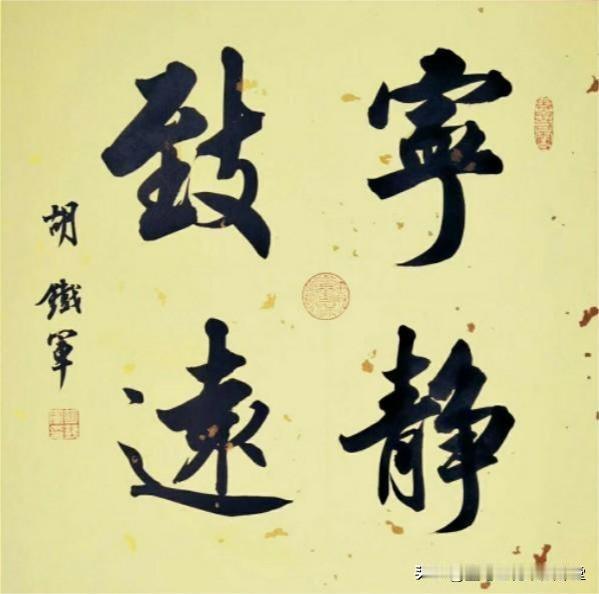 寧靜
致遠
胡鐵軍